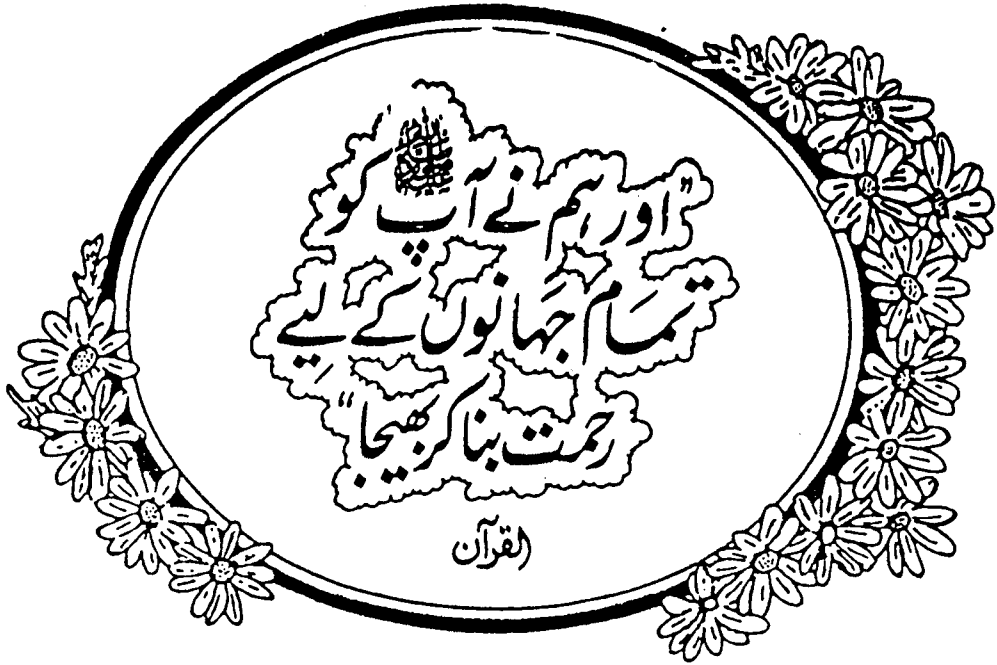 "اور ہم نے آپ ﷺ کو
تمام جہانوں کے لیے
رحمت بنا کر بھیجا"
القرآن